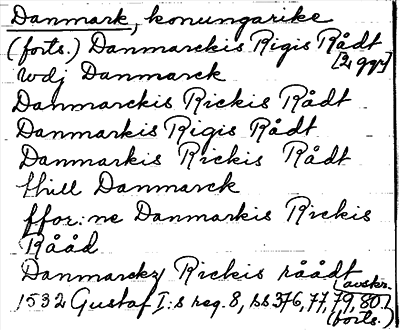 Danmark, konungarike
(forts.) Danmarckis Rigis Rådt
[2 ggr]
wdj Danmarck
Danmarckis Rickis Rådt
Danmarkis Rigis Rådt
Danmarkis Rickis Rådt
thill Danmarck
ffor:ne Danmarkis Rickis
Rååd
Danmarckz Rickis råådt
(avskr.
1532 Gustaf I:s reg. 8, ss 376, 77, 79, 80)
(forts.)